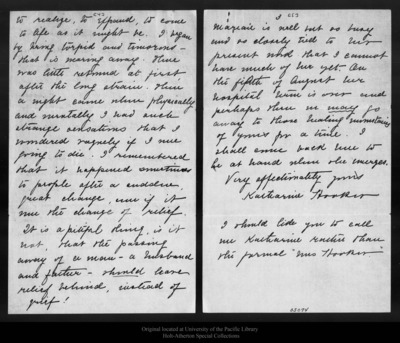 to realize, to expand, to come
to life as it might be. I began
by being torpid and timorous -
that is wearing away. There
was little rebound at first
after the long strain. Then
a night came when physically
and mentally I had such
strange sensations that I
wondered vaguely if I was
going to die. I remembered
that it happened sometimes
to people after a sudden
great change, even if it
was the change of relief.
It is a pitiful thing, is it
not, that the passing
away of a man - a husband
and father - should leave
relief behind, instead of
grief!
Marian is well but so busy
and so closely tied to her
present work that I cannot
have much of her yet. On
the fifth of August her
hospital term is over and
perhaps then we may go
away to those healing mountains
of yours for a time. I
shall come back here to
be at hand when she emerges.
Very affectionately yours
Katharine Hooker
I should like you to call
me Katharine rather than
the formal "Mrs Hooker"
Original located at University of the Pacific Library
Holt-Atherton Special Collections